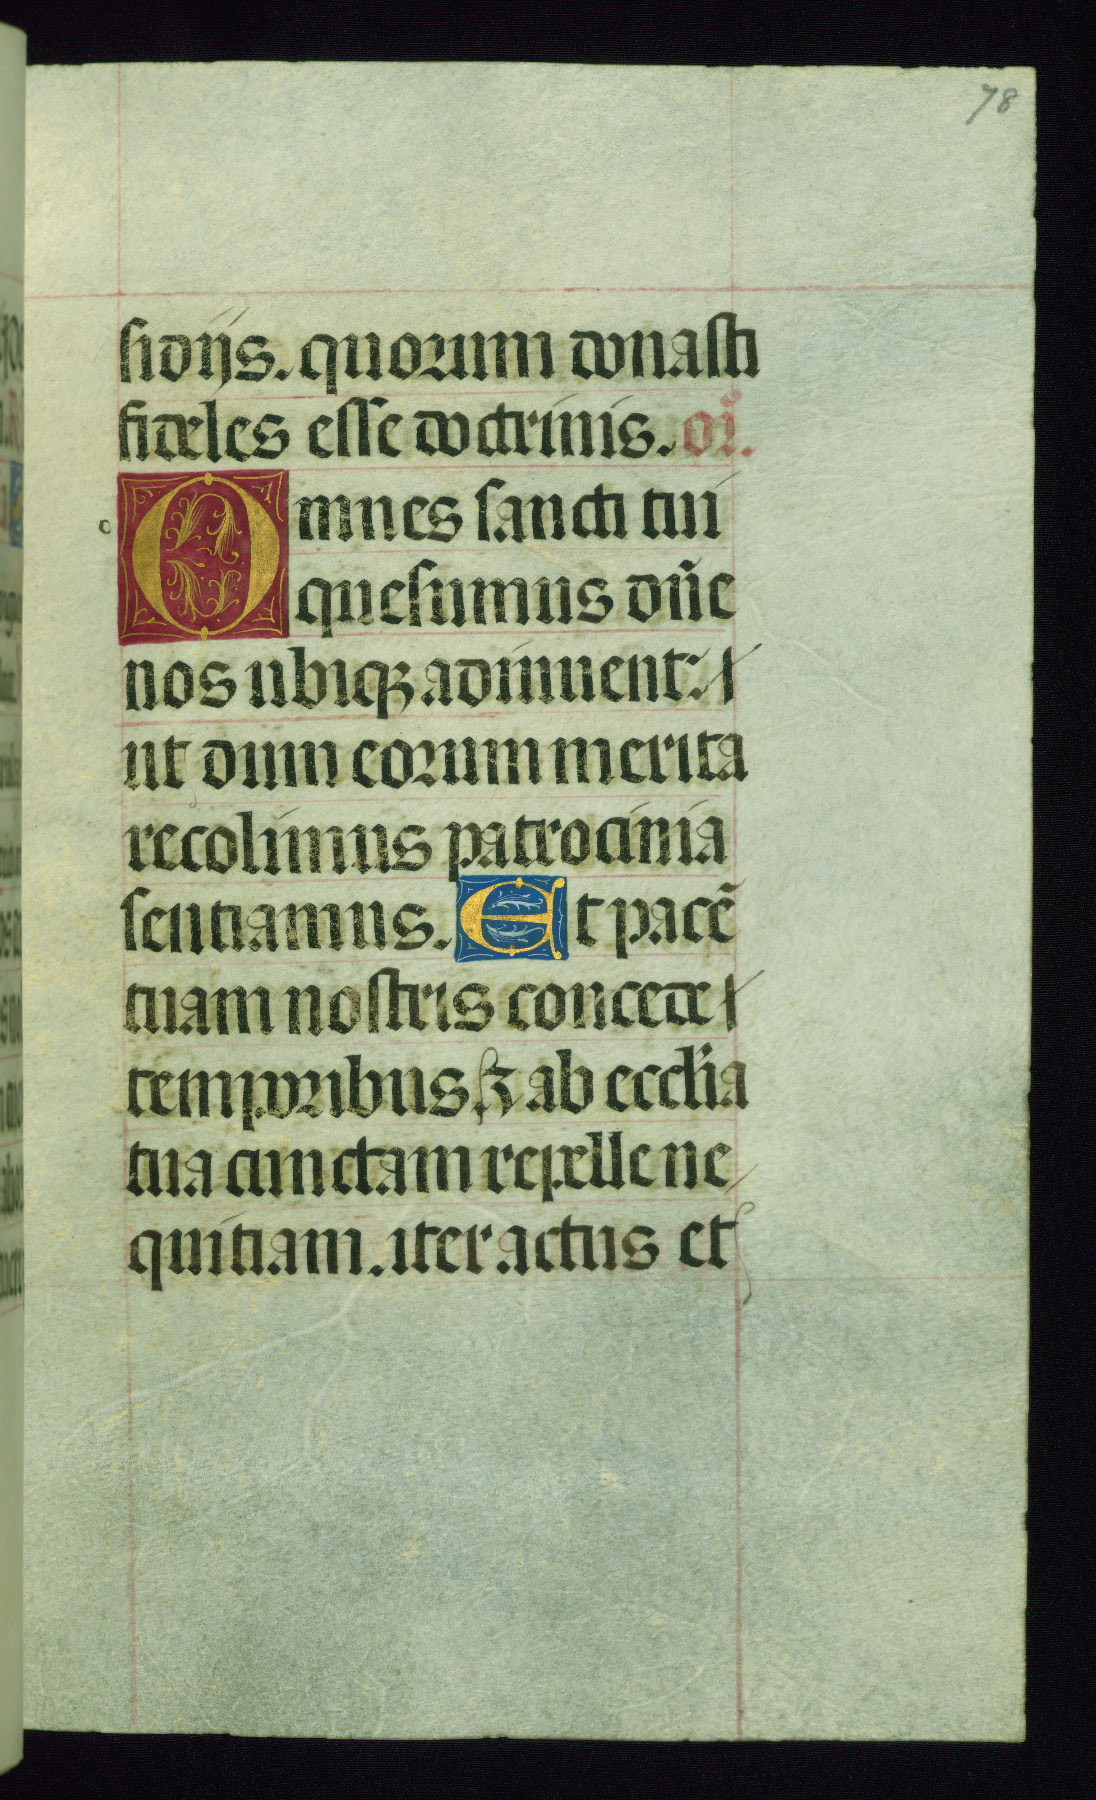 78
sidijs. quorum donasti
fideles esse doctrinis. or̄.
Omnes sancti tui
c
quesumus dn̄e
nos ubiqꝫ adiuuent:
ut dum eorum merita
recolimus patrocinia
sentiamus. Et pacē
tuam nostris concede
temporibus ⁊ ab ecclīa
tua cunctam repelle ne
quitiam. iter actus et